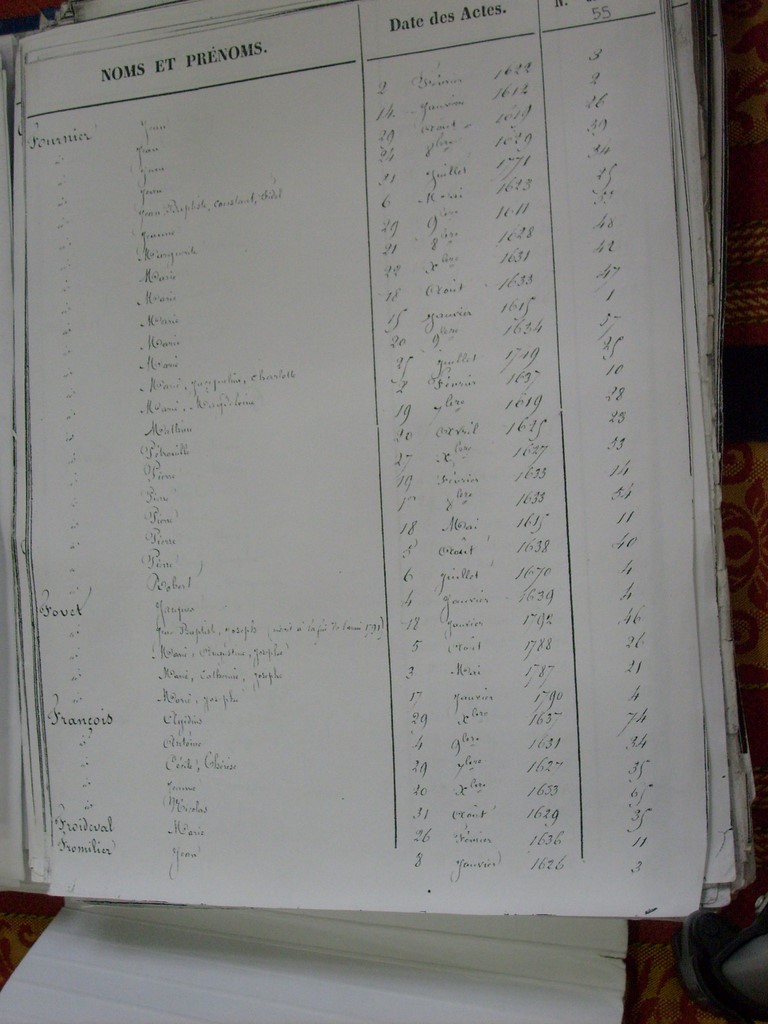 NOMS ET PRÉNOMS. Date des Actes. N.
55
Fournier Jean 2 Février 1622 3
d° Jean 14 Janvier 1612 2
d° Jean 29 Aout 1619 26
d° Jean 24 7bre 1629 39
d° Jean Baptiste, constant, fidel 31 Juillet 1771 34
d° Jeanne 6 Mai 1623 25
d° Marguerite 29 9bre 1611
d° Marie 21 8bre 1628 48
d° Marie 22 Xbre 1631 42
d° Marie 18 Aout 1633 47
d° Marie 15 Janvier 1615 1
d° Marie 20 9bre 1634 57
d° Marie, Jacqueline, Charlotte 25 Juillet 1719 25
d° Marie, Magdeleine 2 Février 1637 10
d° Mathieu 19 7bre 1619 28
d° Pétronille 20 Avril 1625 23
d° Pierre 27 Xbre 1627 53
d° Pierre 19 Février 1633 14
d° Pierre 1er 9bre 1633 54
d° Pierre 18 Mai 1615 11
d° Pierre 5 Aout 1638 40
d° Robert 6 Juillet 1670 4
Fovet Jacques 4 Janvier 1639 4
d° Jean Baptiste, Joseph (mort à la fin de l'année 1791) 18 Janvier 1792 46
d° Marie, Augustine, Josèphe 5 Aout 1788 26
d° Marie, Catherine, Josèphe 3 Mai 1787 21
d° Marie, Joseph 17 Janvier 1790 4
François Agidius 29 Xbre 1637 74
d° Antoine 4 9bre 1631 34
d° Cécile, Thérèse 29 7bre 1627 35
d° Jeanne 20 Xbre 1633 65
d° Nicolas 31 Aout 1629 35
Froideval Marie 26 Février 1636 11
Fromilier Jean 8 Janvier 1626 3